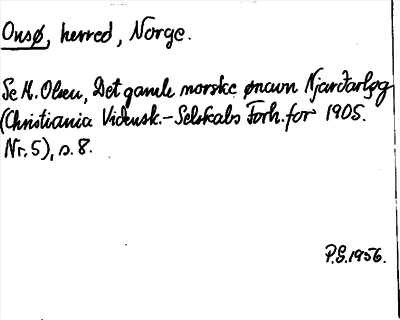 Onsø, herred, Norge.
Se M. Olsen, Det gamle norske ønavn Njarðarløg
(Christiania Vidensk.-Selskabs Forh. for 1905.
Nr. 5), s. 8.
P.G. 1956.